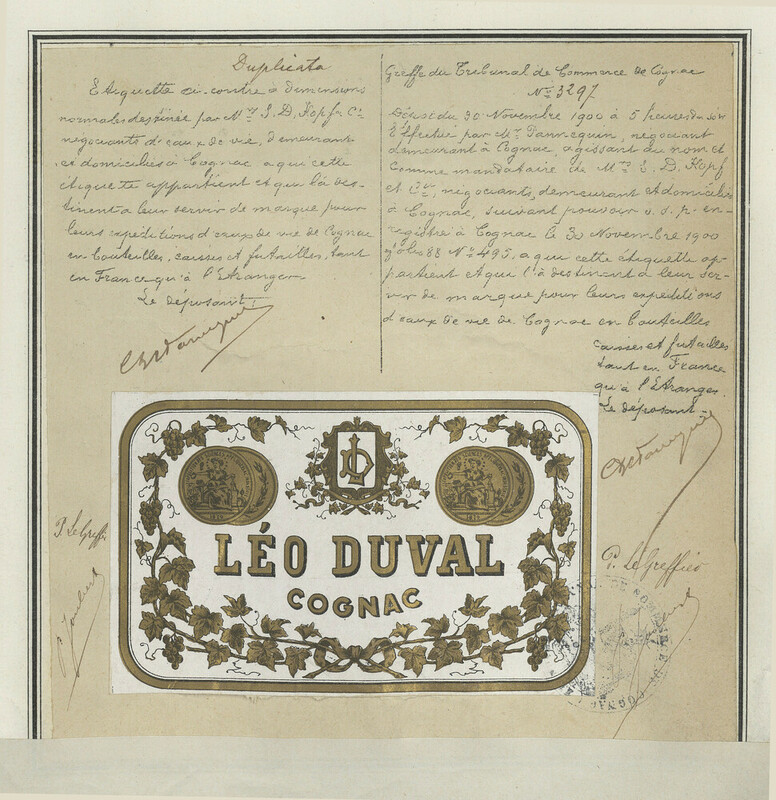 Duplicata
Etiquette ci-contre à dimensions
normales destinée par M.rs S. D. Kopf & Cie
négociants d'eaux de vie, demeurant
et domiciliés à Cognac à qui cette
étiquette appartient et qui là des-
tinent à leur servir de marque pour
leurs expéditions d'eaux de vie de Cognac
en bouteilles, caisses et futailles, tant
en France qu'à l'Etranger
Le déposant
Greffe du Tribunal de Commerce de Cognac
No 3297
Dépôt du 30 Novembre 1900 à 5 heures du soir
Effectué par Mr. Tannequin, négociant
demeurant à Cognac, agissant au nom et
comme mandataire de M.rs S. D. Kopf
et Cie, négociants, demeurant et domiciliés
à Cognac, suivant pouvoir s. s. p. en-
registré à Cognac le 30 Novembre 1900
folio 88 No 495, à qui cette étiquette ap-
partient et qui l'à destinent à leur ser-
vir de marque pour leurs expéditions
d'eaux de vie de Cognac en bouteilles
caisses et futailles
tant en France
qu'à l'Etranger.
Le déposant
LD
LÉO DUVAL
COGNAC
P. Le Greffier
P. Le Greffier
COGNAC